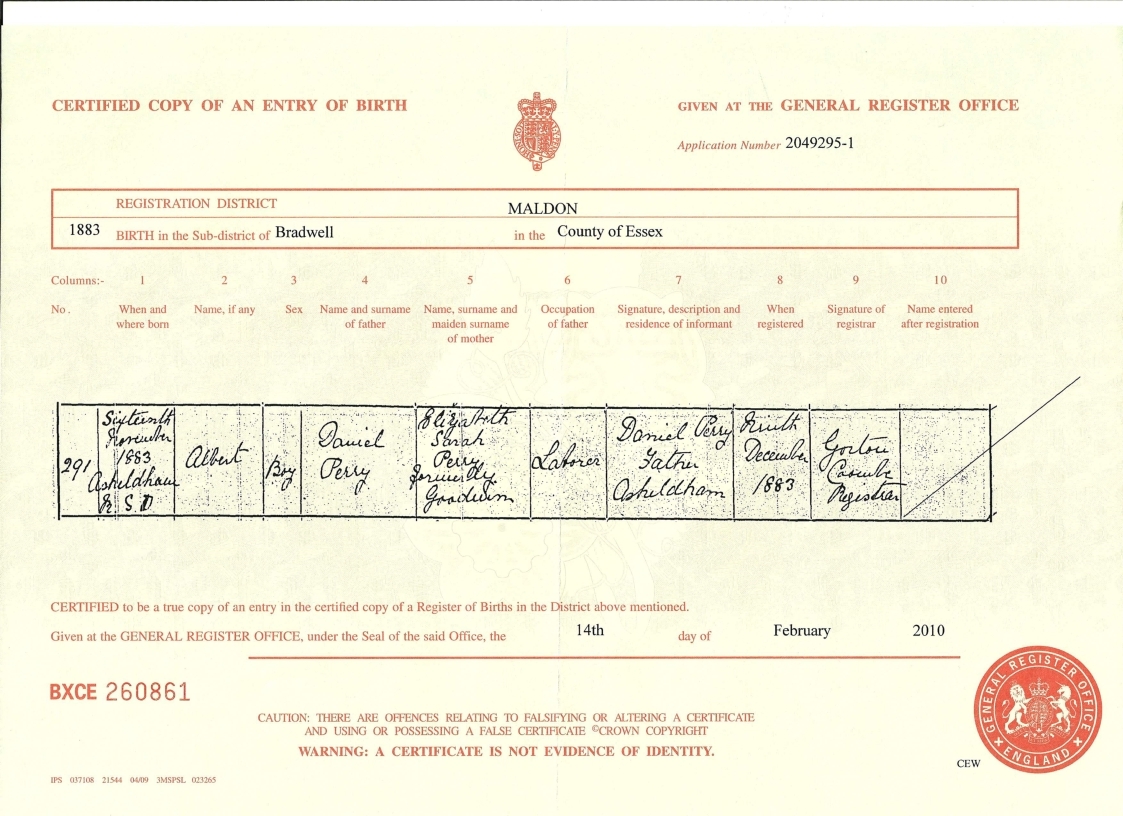 CERTIFIED COPY OF AN ENTRY OF BIRTH
GIVEN AT THE GENERAL REGISTER OFFICE
Application Number 2049295-1
REGISTRATION DISTRICT MALDON
1883 BIRTH in the Sub-district of Bradwell in the County of Essex
Columns:- 1 2 3 4 5 6 7 8 9 10
No. When and where born Name, if any Sex Name and surname of father Name, surname and maiden surname of mother Occupation of father Signature, description and residence of informant When registered Signature of registrar Name entered after registration
291
Sixteenth
November
1883
Asheldham
R S D
Albert
Boy
Daniel
Perry
Elizabeth
Sarah
Perry
formerly
Goodwin
Laborer
Daniel Perry
Father
Asheldham
Ninth
December
1883
Gorton
Coombe
Registrar
CERTIFIED to be a true copy of an entry in the certified copy of a Register of Births in the District above mentioned.
Given at the GENERAL REGISTER OFFICE, under the Seal of the said Office, the 14th day of February 2010
BXCE 260861
CAUTION: THERE ARE OFFENCES RELATING TO FALSIFYING OR ALTERING A CERTIFICATE
AND USING OR POSSESSING A FALSE CERTIFICATE ©CROWN COPYRIGHT
WARNING: A CERTIFICATE IS NOT EVIDENCE OF IDENTITY.
GENERAL REGISTER OFFICE
ENGLAND
CEW
IPS 037108 21544 04/09 3MSPSL 023265